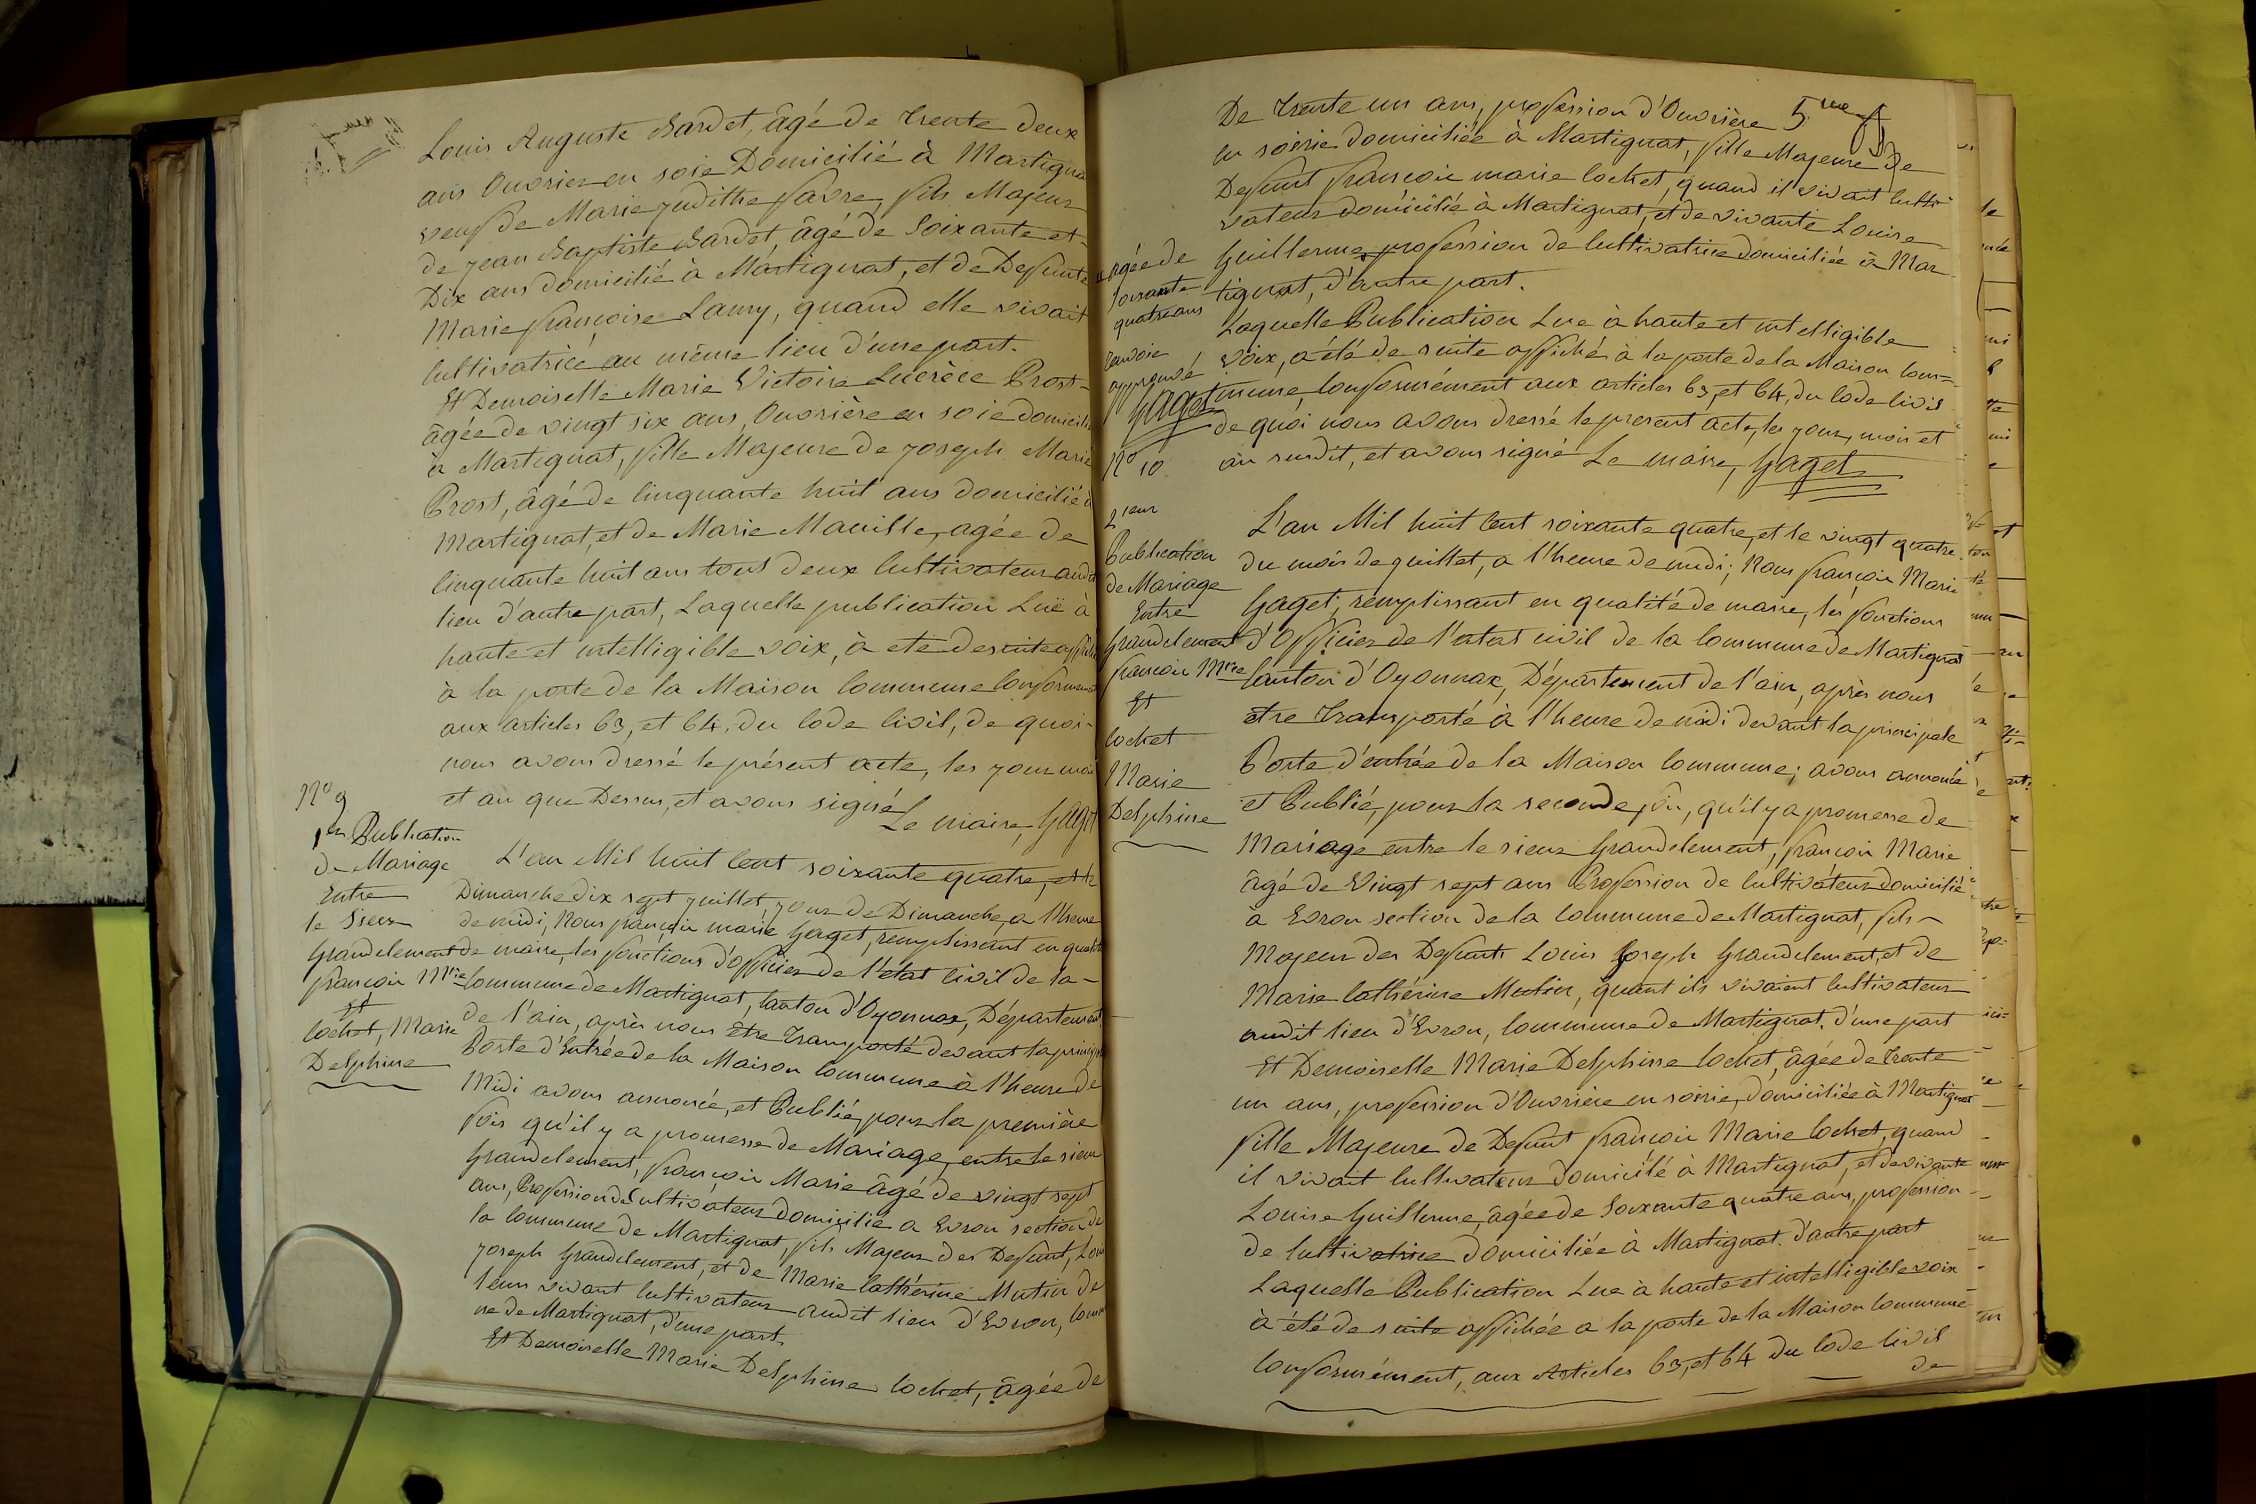 Louis Auguste Bardet, âgé de trente deux
ans Ouvrier en soie Domicilié à Martigna
veuf de Marie Judithe favre, fils Majeur
de Jean Baptiste Bardet, âgé de Soixante et
Dix ans domicilié à Martignat, et de Defunte
Marie françoise Lamy, quand elle vivait
Cultivatrice au même lieu d'une part.
Et Demoiselle Marie Victoire Lucrèce Prost
âgée de vingt six ans, Ouvrière en soie domicili
à Martignat, fille Majeure de Joseph Marie
Prost, âgé de Cinquante huit ans domicilié à
Martignat, et de Marie Maville, agée de
Cinquante huit ans tous deux Cultivateur audit
lieu d'autre part, Laquelle publication Luë à
haute et intelligible voix, à ete de suite affiché
à la porte de la Maison Commune Conformement
aux articles 63, et 64, du Code Civil, de quoi
nous avons dressé le présent acte, les jour mois
et an que Dessus, et avons signé
Le maire, Gaget
N° 9
1er Publication
de Mariage
Entre
le Sieur
Grandclement
françois Mrie
Et
Cochet, Marie
Delphine
L'an Mil huit Cent soixante quatre, et le
Dimanche dix sept juillet, jour de Dimanche, a l'heure
de midi, Nous françois marie Gaget, remplissant en qualité
de maire, les fonctions d'officier de l'état Civil de la
Commune de Martignat, Canton d'Oyonnax, Département
de l'ain, après nous être transporté devant la principa
Porte d'Entrée de la Maison Commune à l'heure de
Midi avons annoncé, et Publié, pour la première
fois qu'il y a promesse de Mariage, entre le sieur
Grandclement, françois Marie âgé de vingt sept
ans, Profession de Cultivateur domicilié a Evron section de
la Commune de Martignat, fils Majeur des Defunt, Louis
Joseph Grandclement, et de Marie Cathérine Mutin de
leur vivant Cultivateur audit lieu d'Evron, Commu
ne de Martignat, d'une part.
Et Demoiselle Marie Delphine Cochet, âgée de
De trente un ans, profession d'Ouvrière 5me
en soirie domiciliée à Martignat, fille Majeure de
Defunt françois marie Cochet, quand il vivait Culti
vateur domicilié à Martignat, et de vivante Louise
Guillerme, profession de Cultivatrice domiciliée à Mar
tignat, d'autre part.
agée de
soixante
quatre ans
renvoie
approuvé
Gaget
Laquelle Publication Lue à haute et intelligible
voix, a été de suite affiché à la porte de la Maison Com=
mune, Conformément aux articles 63, et 64, du Code Civil
de quoi nous avons dressé le present acte, les jour, mois et
an susdit, et avons signé Le maire, Gaget
N° 10
2ieme
Publication
de Mariage
Entre
Grandclement
françois Mrie
Et
Cochet
Marie
Delphine
L'an Mil huit Cent soixante quatre, et le vingt quatre
du mois de juillet, a l'heure de midi; Nous françois Marie
Gaget, remplissant en qualité de maire, les fonctions
d'Officier de l'état civil de la Commune de Martignat
Canton d'Oyonnax, Département de l'ain, après nous
etre transporté à l'heure de midi devant la principale
Porte d'entrée de la Maison Commune; avons annoncé
et Publié, pour la seconde fois, qu'il y a promesse de
Mariage entre le sieur Grandclement, françois Marie
âgé de Vingt sept ans Profession de Cultivateur domicilié
à Evron section de la Commune de Martignat, fils
Majeur des Defunts Louis Joseph Grandclement, et de
Marie Cathérine Mutin, quant ils vivaient Cultivateur
audit lieu d'Evron, Commune de Martignat, d'une part
Et Demoiselle Marie Delphine Cochet, âgée de trente
un ans, profession d'Ouvriere en soirie, domiciliée à Martignat
fille Majeure de Defunt françois Marie Cochet, quand
il vivait Cultivateur domicilé à Martignat, et de vivante
Louise Guillerme, âgée de Soixante quatre ans, profession
de Cultivatrice domiciliée à Martignat. d'autre part
Laquelle Publication Lue à haute et intelligible voix
à été de suite affichée a la porte de la Maison Commune
Conformément, aux Articles 63, et 64 du Code Civil
de